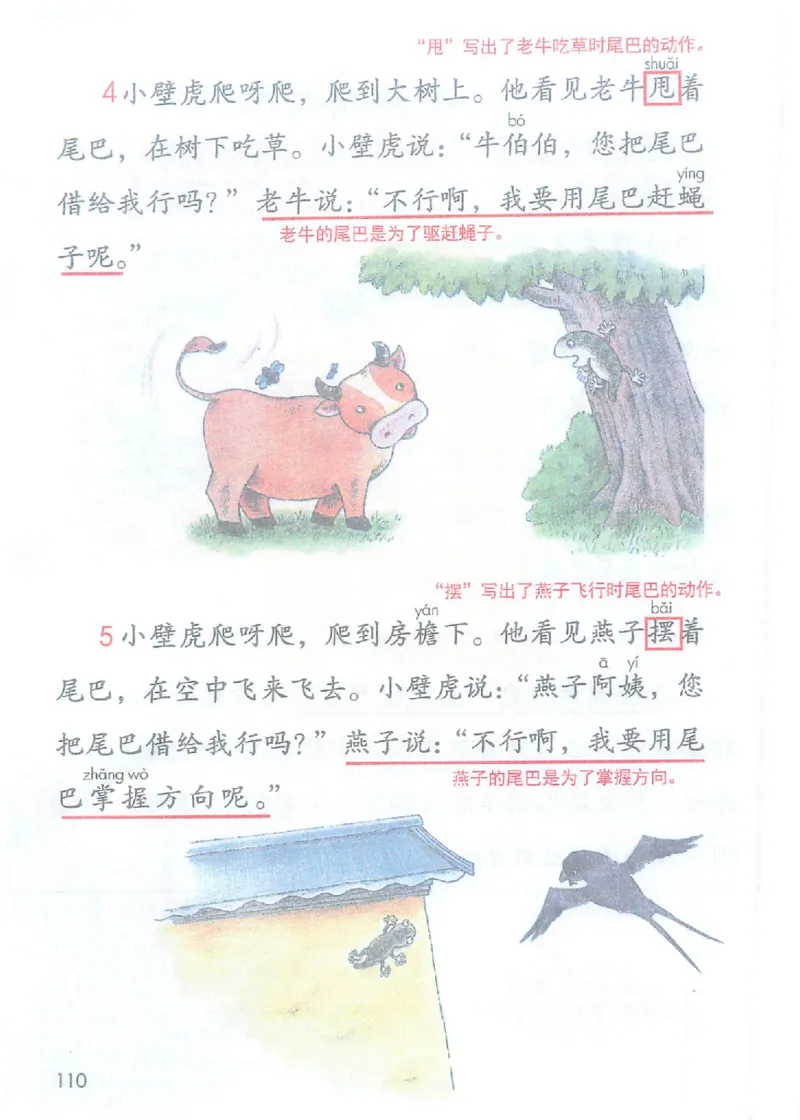 “甩”写出了老牛吃草时尾巴的动作。
shuǎi
4小壁虎爬呀爬，爬到大树上。他看见老牛甩着
bó
尾巴，在树下吃草。小壁虎说：“牛伯伯，您把尾巴
yíng
借给我行吗？”老牛说：“不行啊，我要用尾巴赶蝇
老牛的尾巴是为了驱赶蝇子。
子呢。”
“摆”写出了燕子飞行时尾巴的动作。
yán bǎi
5小壁虎爬呀爬，爬到房檐下。他看见燕子摆着
ā yí
尾巴，在空中飞来飞去。小壁虎说：“燕子阿姨，您
把尾巴借给我行吗？”燕子说：“不行啊，我要用尾
zhǎng wò
燕子的尾巴是为了掌握方向。
巴掌握方向呢。”
110